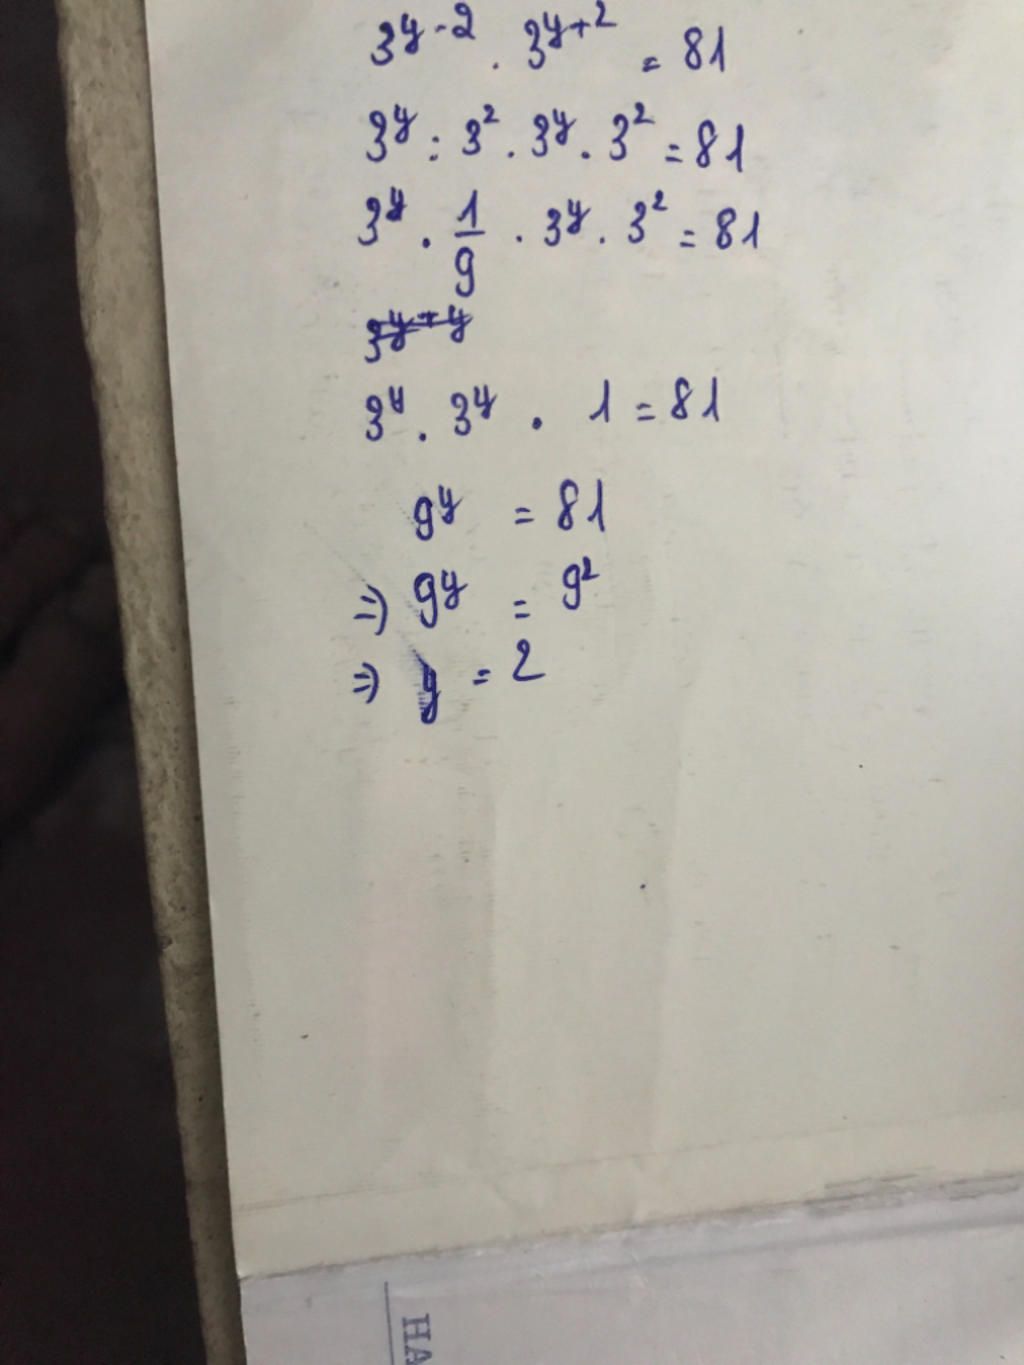 3^{y-2} . 3^{y+2} = 81
3^y : 3^2 . 3^y . 3^2 = 81
3^y . 1/9 . 3^y . 3^2 = 81
3^{y+y}
3^y . 3^y . 1 = 81
9^y = 81
=) 9^y = 9^2
=) y = 2
HA